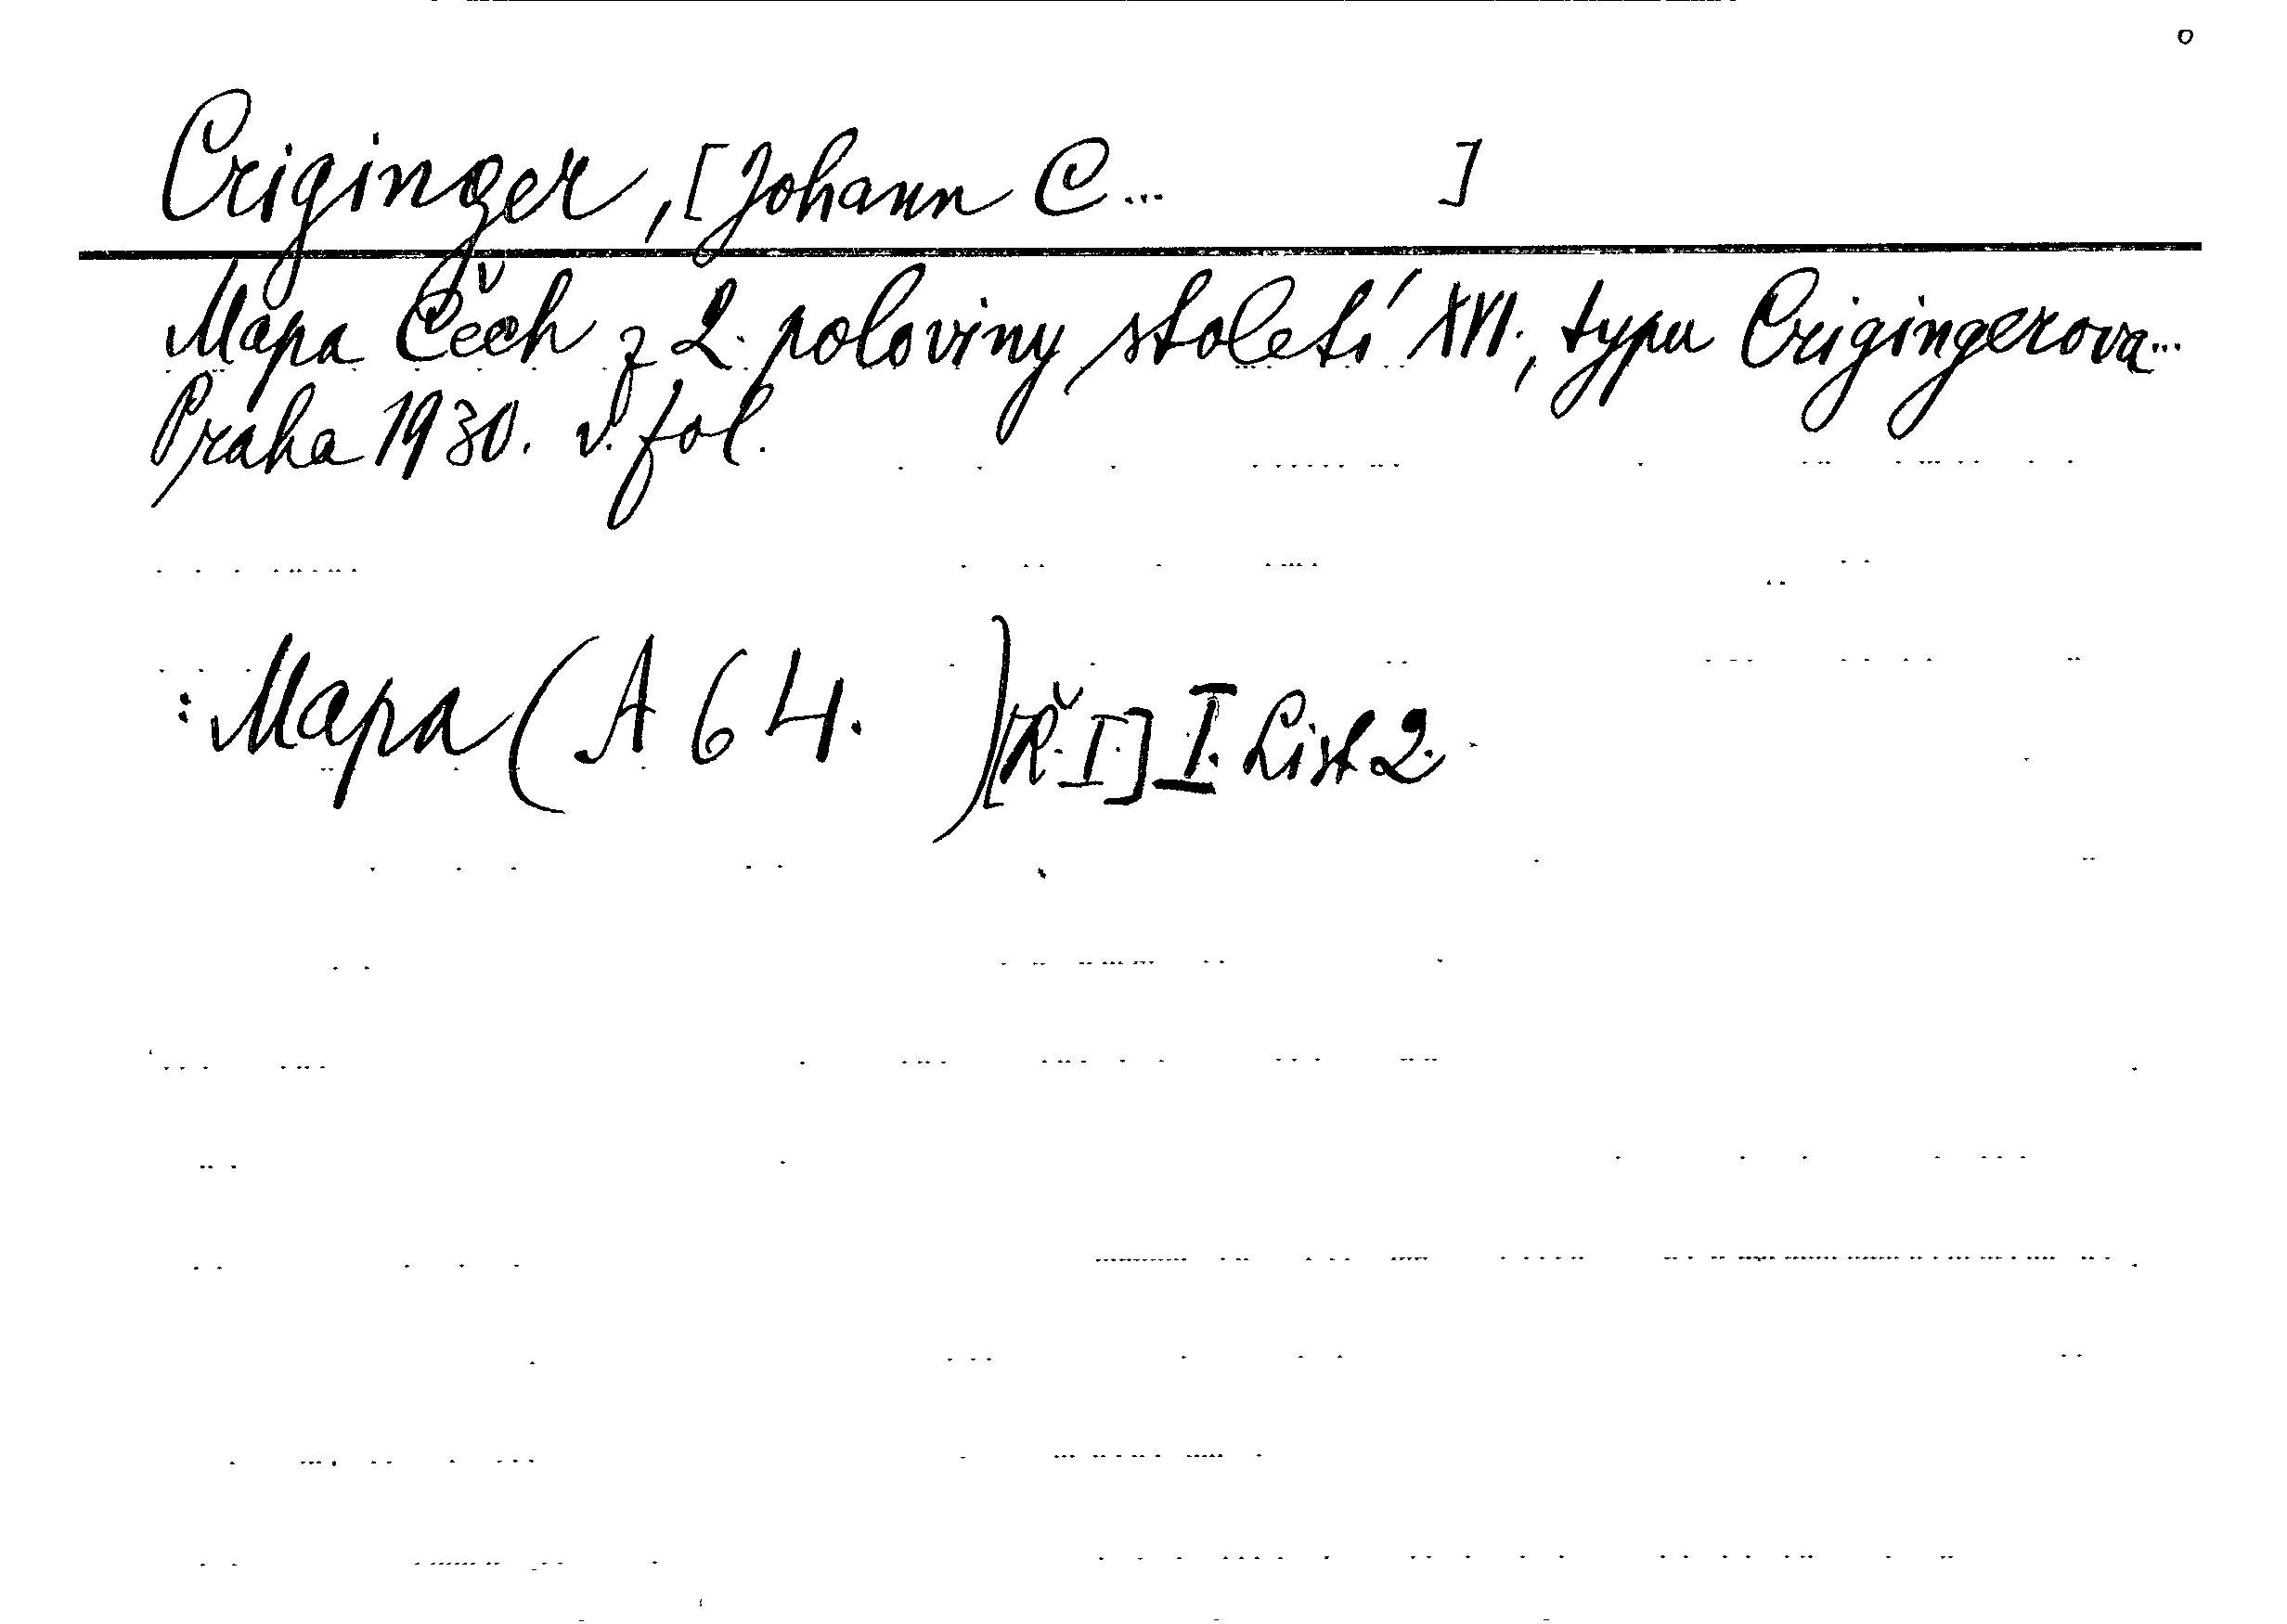 Criginger, [Johann C... ]
Mapa Čech z 2. poloviny století XVI., typu Crigingerova...
Praha 1930. v. fol.
: Mapa (A 64. ) [Ř. I.] I. List 2.